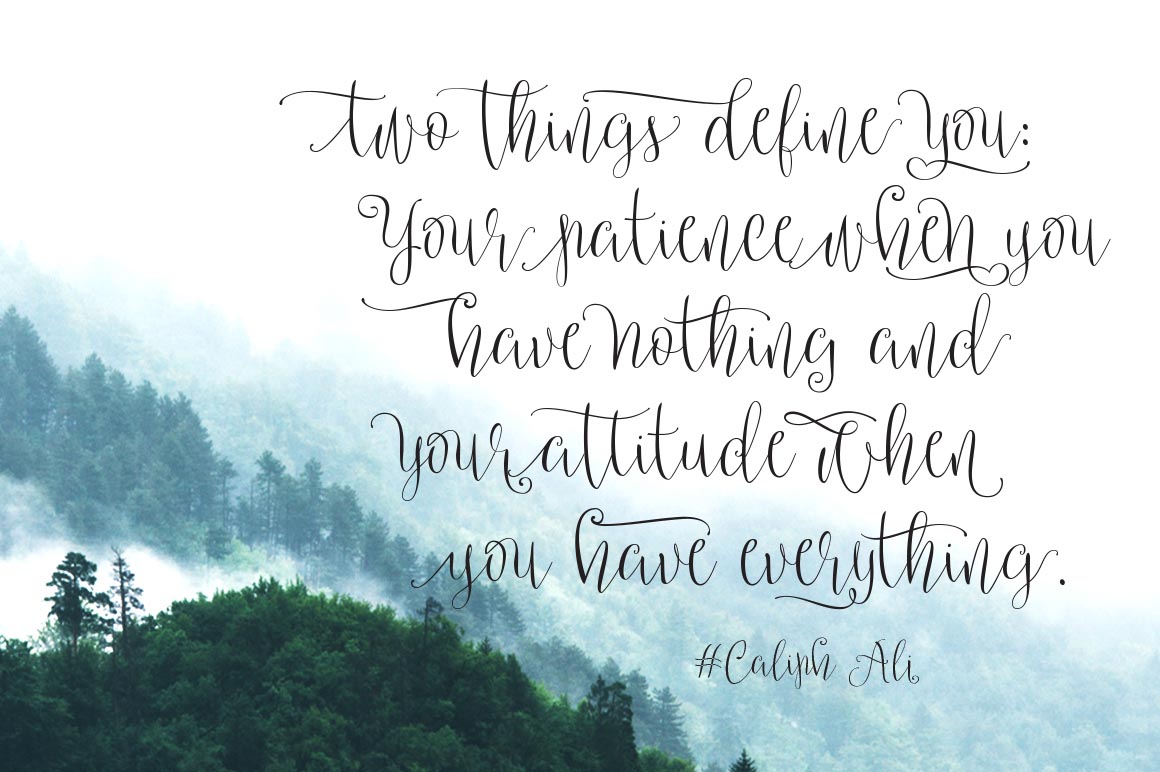 two things define you:
Your patience when you
have nothing and
your attitude when
you have everything.
#Caliph Ali